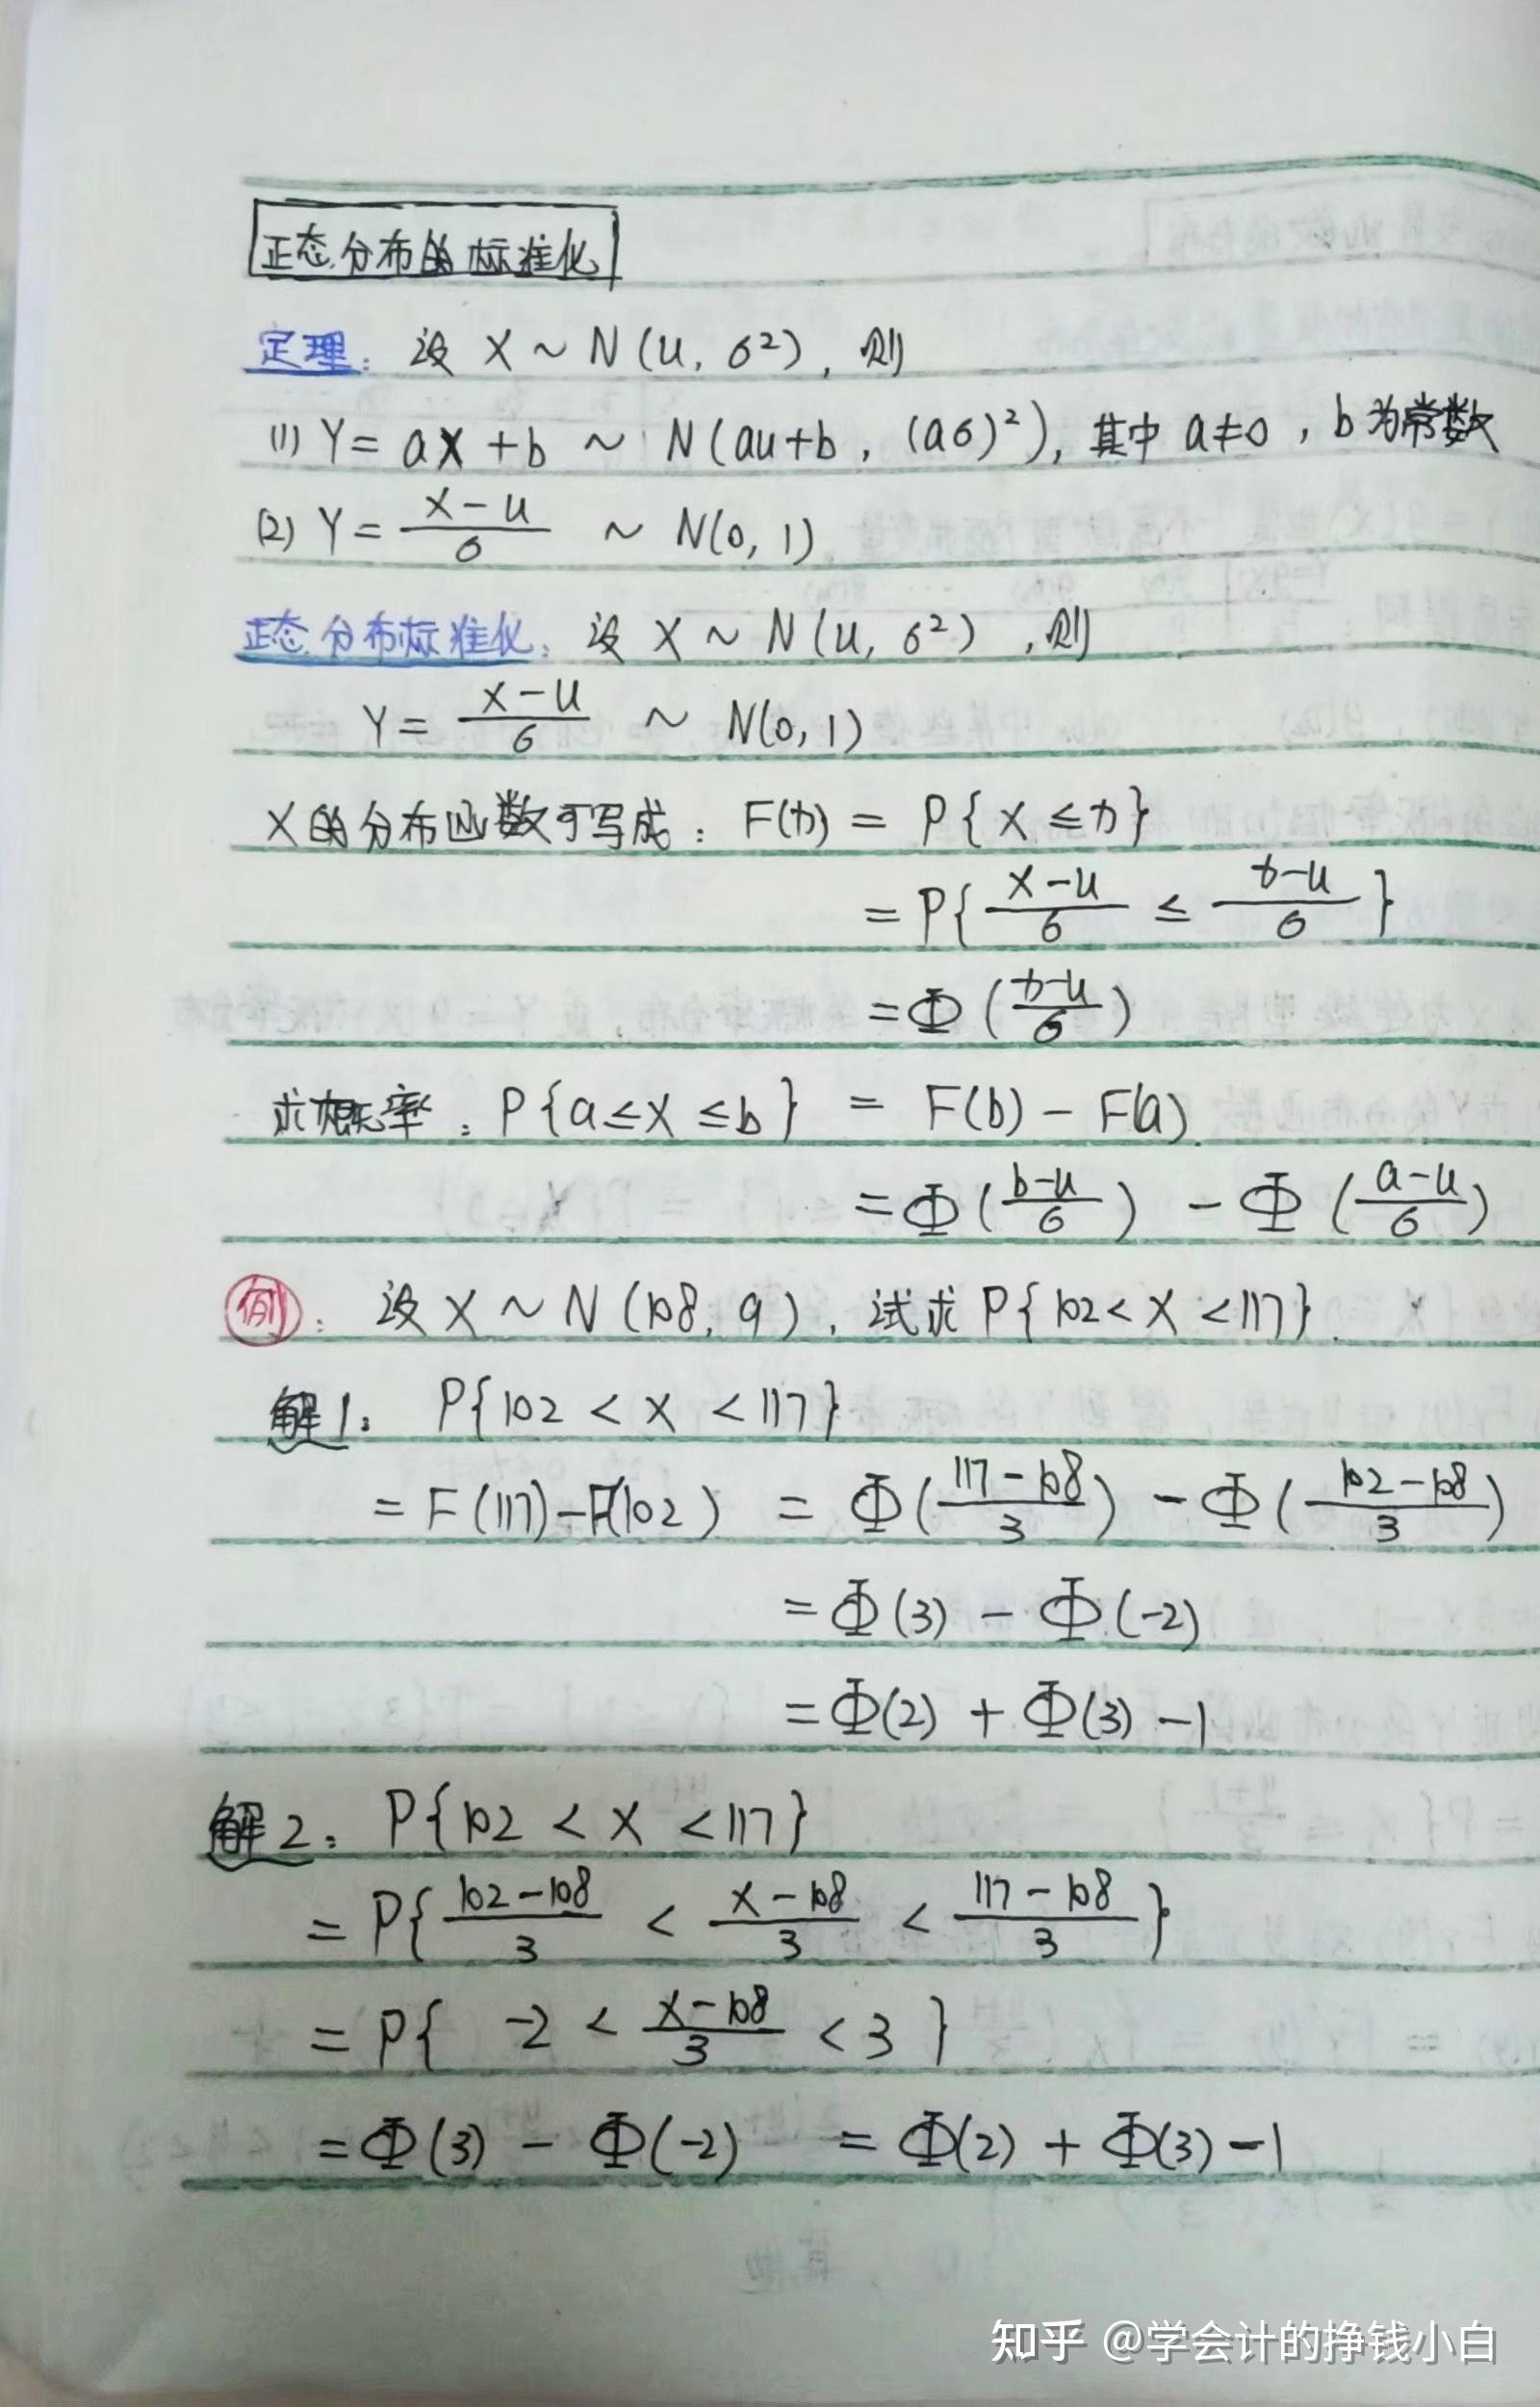 正态分布的标准化
定理：设 X ~ N(u, σ²)，则
(1) Y = aX + b ~ N(au+b, (aσ)²)，其中 a≠0，b为常数
(2) Y = (X-u)/σ ~ N(0, 1)
正态分布标准化：设 X ~ N(u, σ²)，则
Y = (X-u)/σ ~ N(0, 1)
X的分布函数可写成：F(x) = P{X ≤ x}
= P{(X-u)/σ ≤ (x-u)/σ}
= Φ((x-u)/σ)
求概率：P{a≤X≤b} = F(b) - F(a)
= Φ((b-u)/σ) - Φ((a-u)/σ)
例：设 X ~ N(108, 9)，试求 P{102<X<117}.
解1：P{102 < X < 117}
= F(117) - F(102) = Φ((117-108)/3) - Φ((102-108)/3)
= Φ(3) - Φ(-2)
= Φ(2) + Φ(3) - 1
解2：P{102 < X < 117}
= P{(102-108)/3 < (X-108)/3 < (117-108)/3}
= P{ -2 < (X-108)/3 < 3 }
= Φ(3) - Φ(-2) = Φ(2) + Φ(3) - 1
知乎 @学会计的挣钱小白